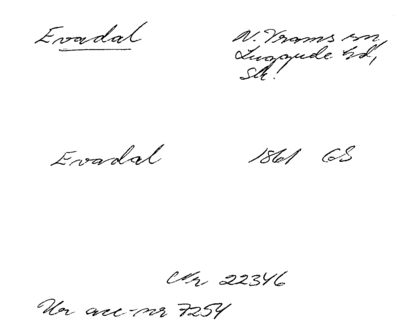 Evadal
N. Vrams sn,
Luggude hd,
Sk.
Evadal 1861 GS
Nr 22346
Ur acc-nr 7254